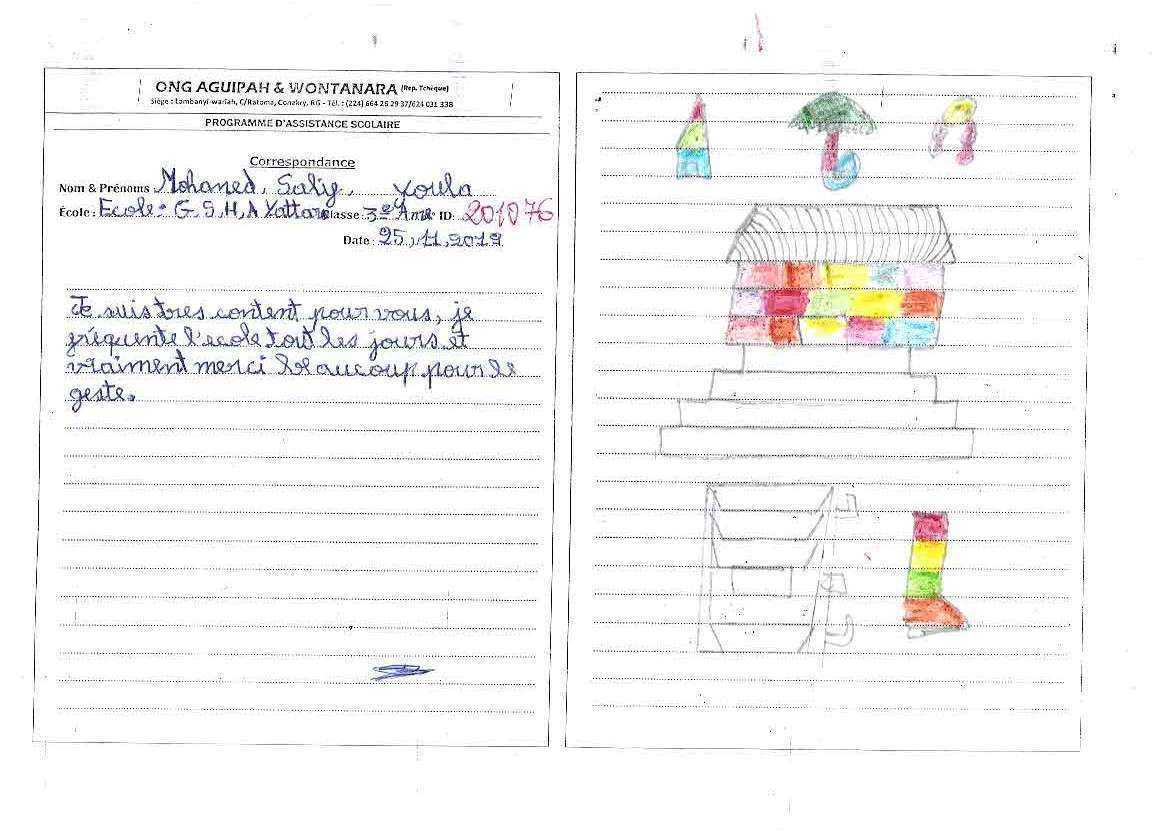 ONG AGUIPAH & WONTANARA (Rep. Tchèque)
Siège : Lambanyi-wariah, C/Ratoma, Conakry, RG - Tél. : (224) 664 26 29 37/624 031 338
PROGRAMME D'ASSISTANCE SCOLAIRE
Correspondance
Nom & Prénoms Mohamed, Salif, Youla
École : Ecole - G S, H, A Yattara Classe : 3e Ann ID: 201076
Date : 25, 11, 2019
Je suis tres content pour vous, je
fréquente l'ecole tout les jours et
vraiment merci beaucoup pour le
geste.